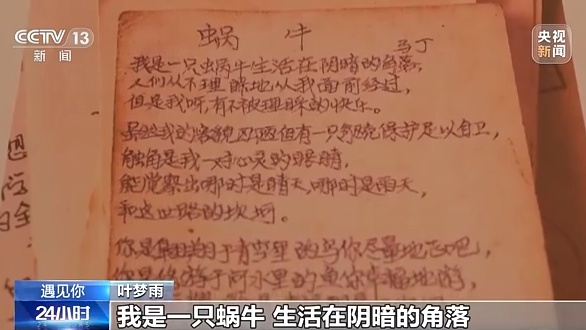 CCTV 13
新闻
央视
新闻
蜗 牛
马丁
我是一只蜗牛生活在阴暗的角落
人们从不理睬地从我面前经过,
但是我呀,有不被理睬的快乐。
我的容貌 但有一只 保护足以自卫,
触角是我一对心灵的眼睛,
能觉察出哪时是晴天,哪时是雨天,
和这世路的坎坷。
你是翱翔于青空里的鸟你尽量地飞吧,
你是 游于河水里的鱼你幸福地游,
遇见你
叶梦雨
24小时
我是一只蜗牛 生活在阴暗的角落